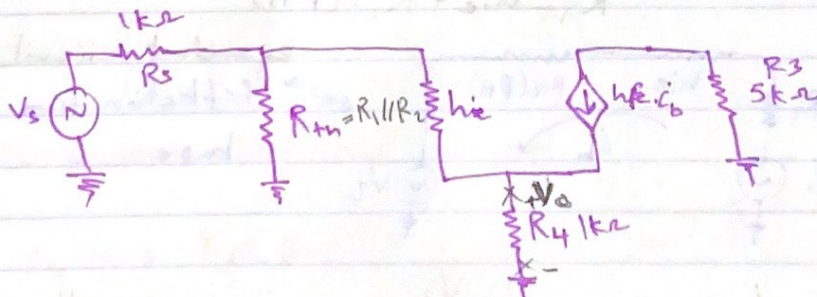 1kΩ
Rs
Vs
Rth=R1//R2
hie
hfe.ib
R3
5kΩ
+Vo
R4 1kΩ
-